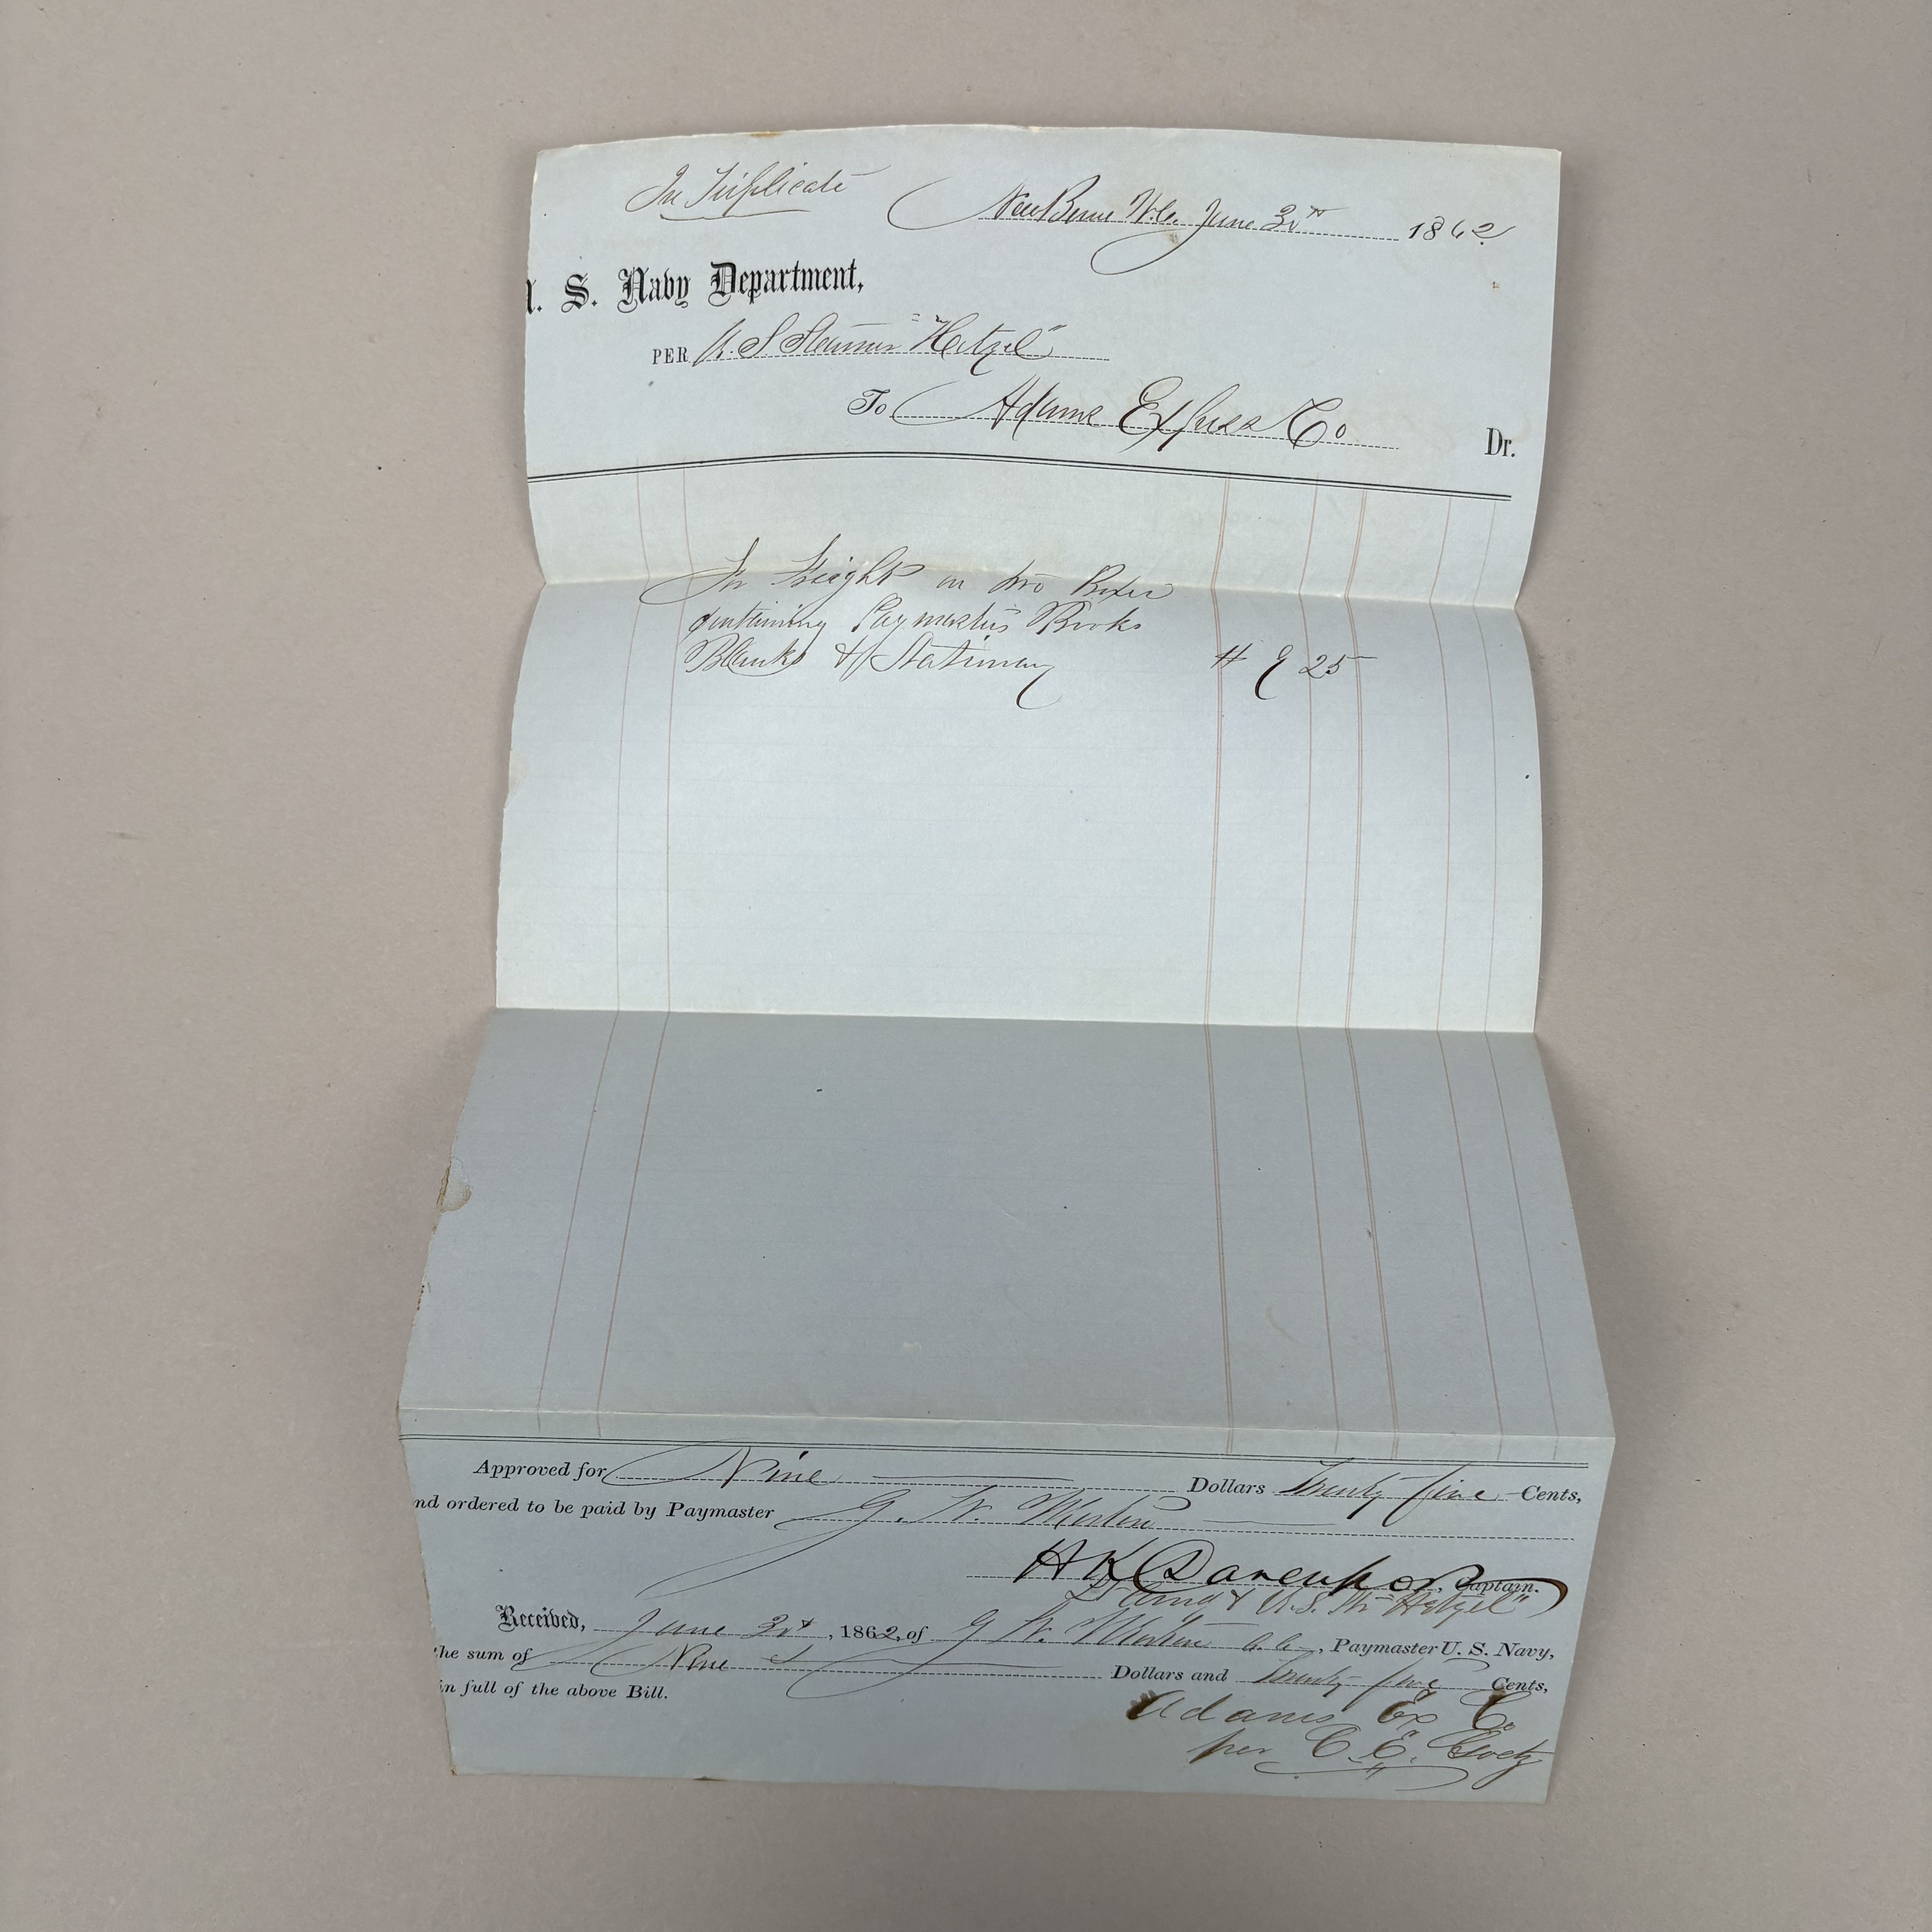 In Triplicate
New Berne N.C. June 30th 1862
. S. Navy Department,
PER U. S Steamer "Hetzel"
To Adams Express Co Dr.
For Freight on two Boxes
containing Paymasters Books
Blanks & Stationery $ 9 25
Approved for Nine Dollars Twenty five Cents,
nd ordered to be paid by Paymaster G. W.
H K Davenport, Captain.
Comdg U.S. Str "Hetzel"
Received, June 30th, 1862, of G W. , Paymaster U. S. Navy,
the sum of Nine Dollars and Twenty five Cents,
in full of the above Bill.
Adams Ex Co
per C. E. Goetz